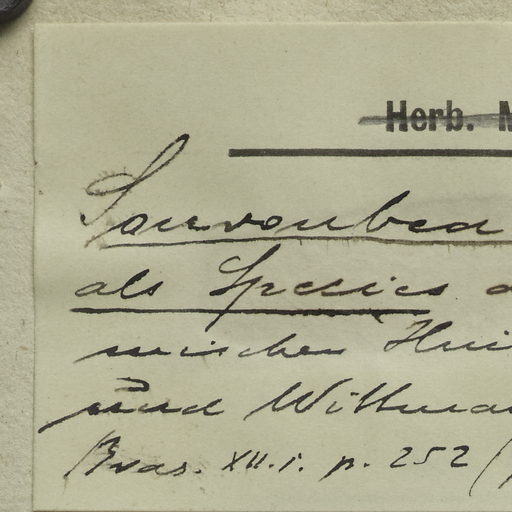 Herb.
Souroubea
als Species
zwischen
und Wittma
Bras. XII.1. p. 252 (